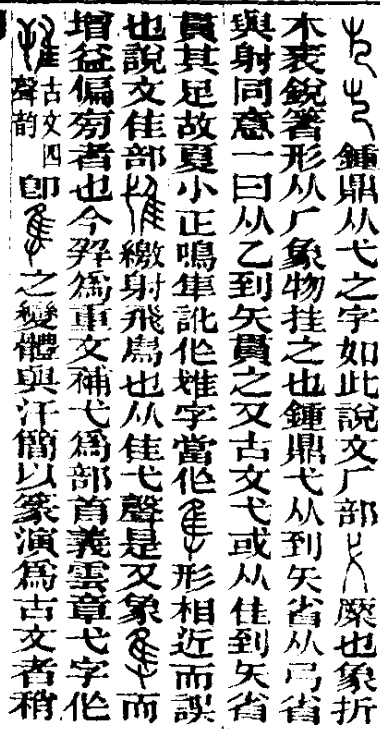 鍾鼎从弋之字如此說文厂部𠂆橜也象折
木衺銳箸形从厂象物挂之也鍾鼎弋从到矢省从弓省
與射同意一曰从乙到矢貫之又古文弋或从隹到矢省
貫其足故夏小正鳴隼訛作雉字當作形相近而誤
也說文隹部繳射飛鳥也从隹弋聲是又象而
增益偏旁者也今舜爲重文補弋爲部首義雲章弋字作
古文四聲韵即之變體與汗簡以篆演爲古文者稍